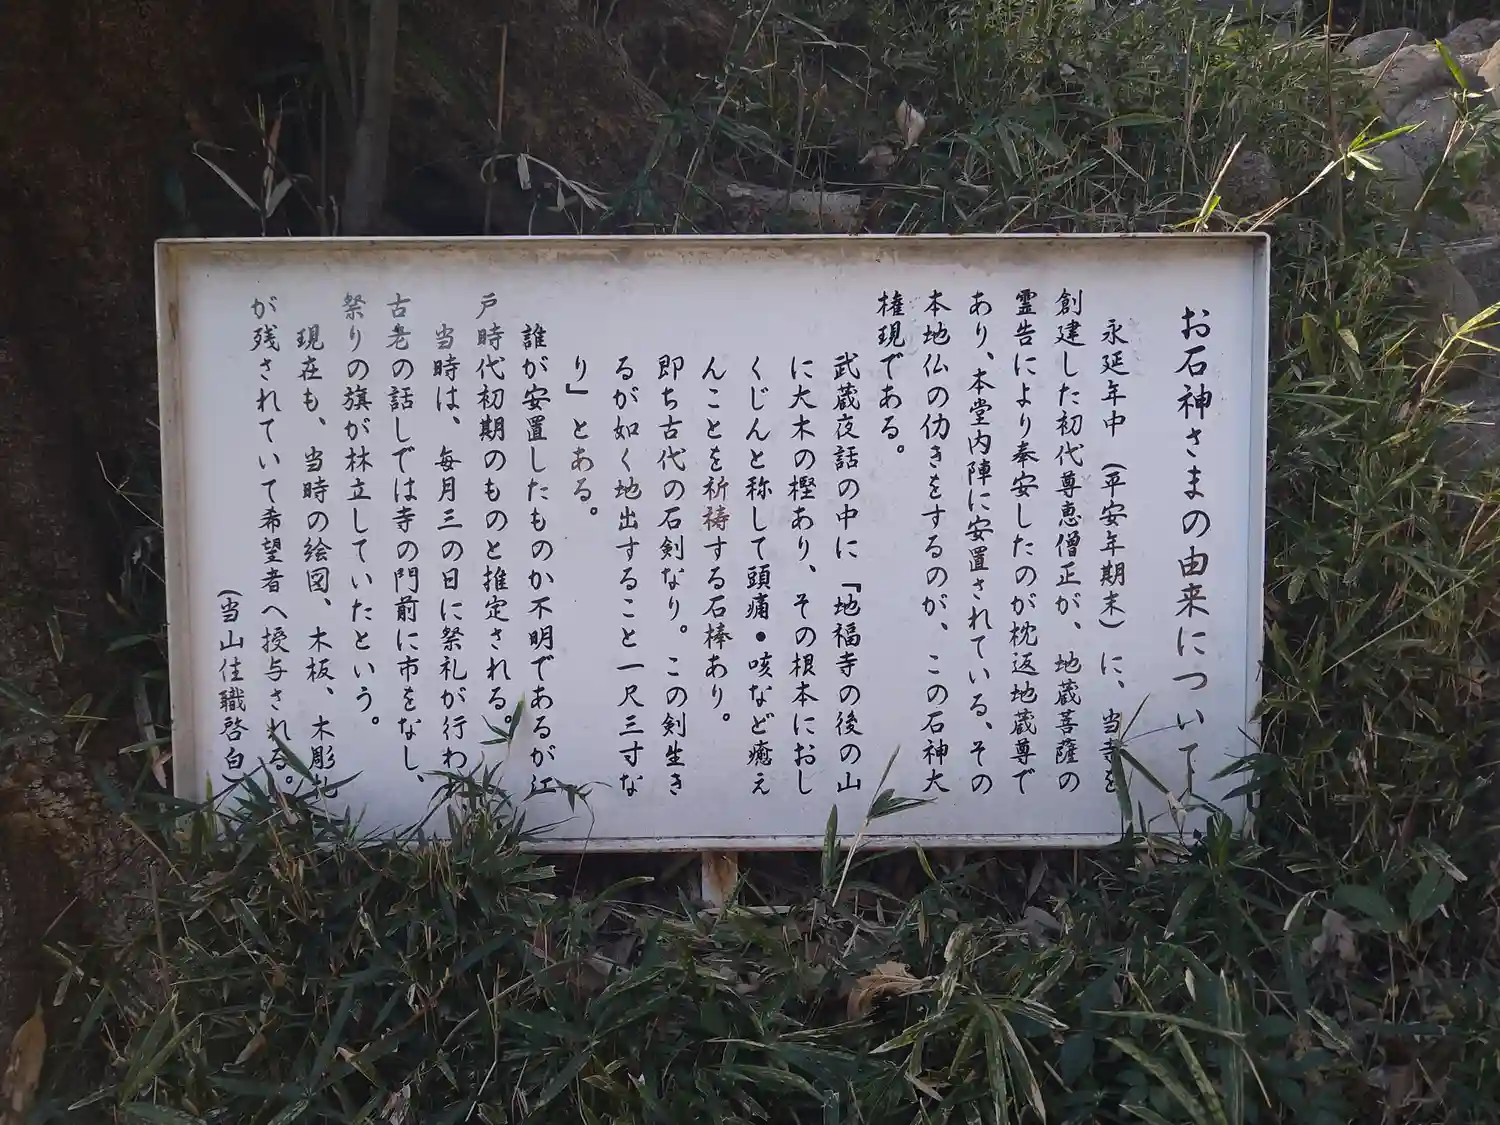 お石神さまの由来について
永延年中（平安年期末）に、当寺を
創建した初代尊恵僧正が、地蔵菩薩の
霊告により奉安したのが枕返地蔵尊で
あり、本堂内陣に安置されている、その
本地仏の仂きをするのが、この石神大
権現である。
武蔵夜話の中に「地福寺の後の山
に大木の樫あり、その根本におし
くじんと称して頭痛・咳など癒え
んことを祈祷する石棒あり。
即ち古代の石剣なり。この剣生き
るが如く地出すること一尺三寸な
り」とある。
誰が安置したものか不明であるが江
戸時代初期のものと推定される。
当時は、毎月三の日に祭礼が行わ
古老の話しでは寺の門前に市をなし、
祭りの旗が林立していたという。
現在も、当時の絵図、木板、木彫札
が残されていて希望者へ授与される。
（当山住職啓白）